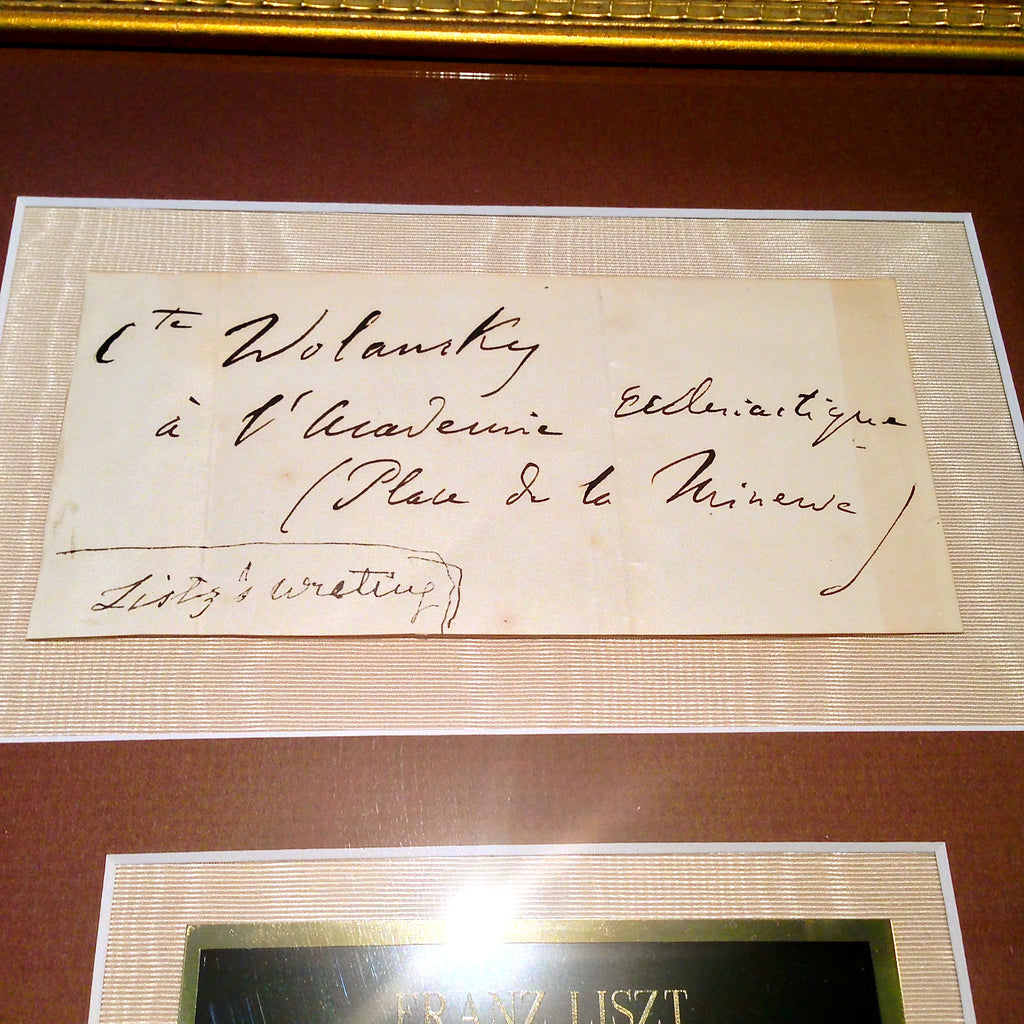 Cte Wolansky
à l'Academie Ecclesiastique
(Place de la Minerve)
Listz's writing
FRANZ LISZT